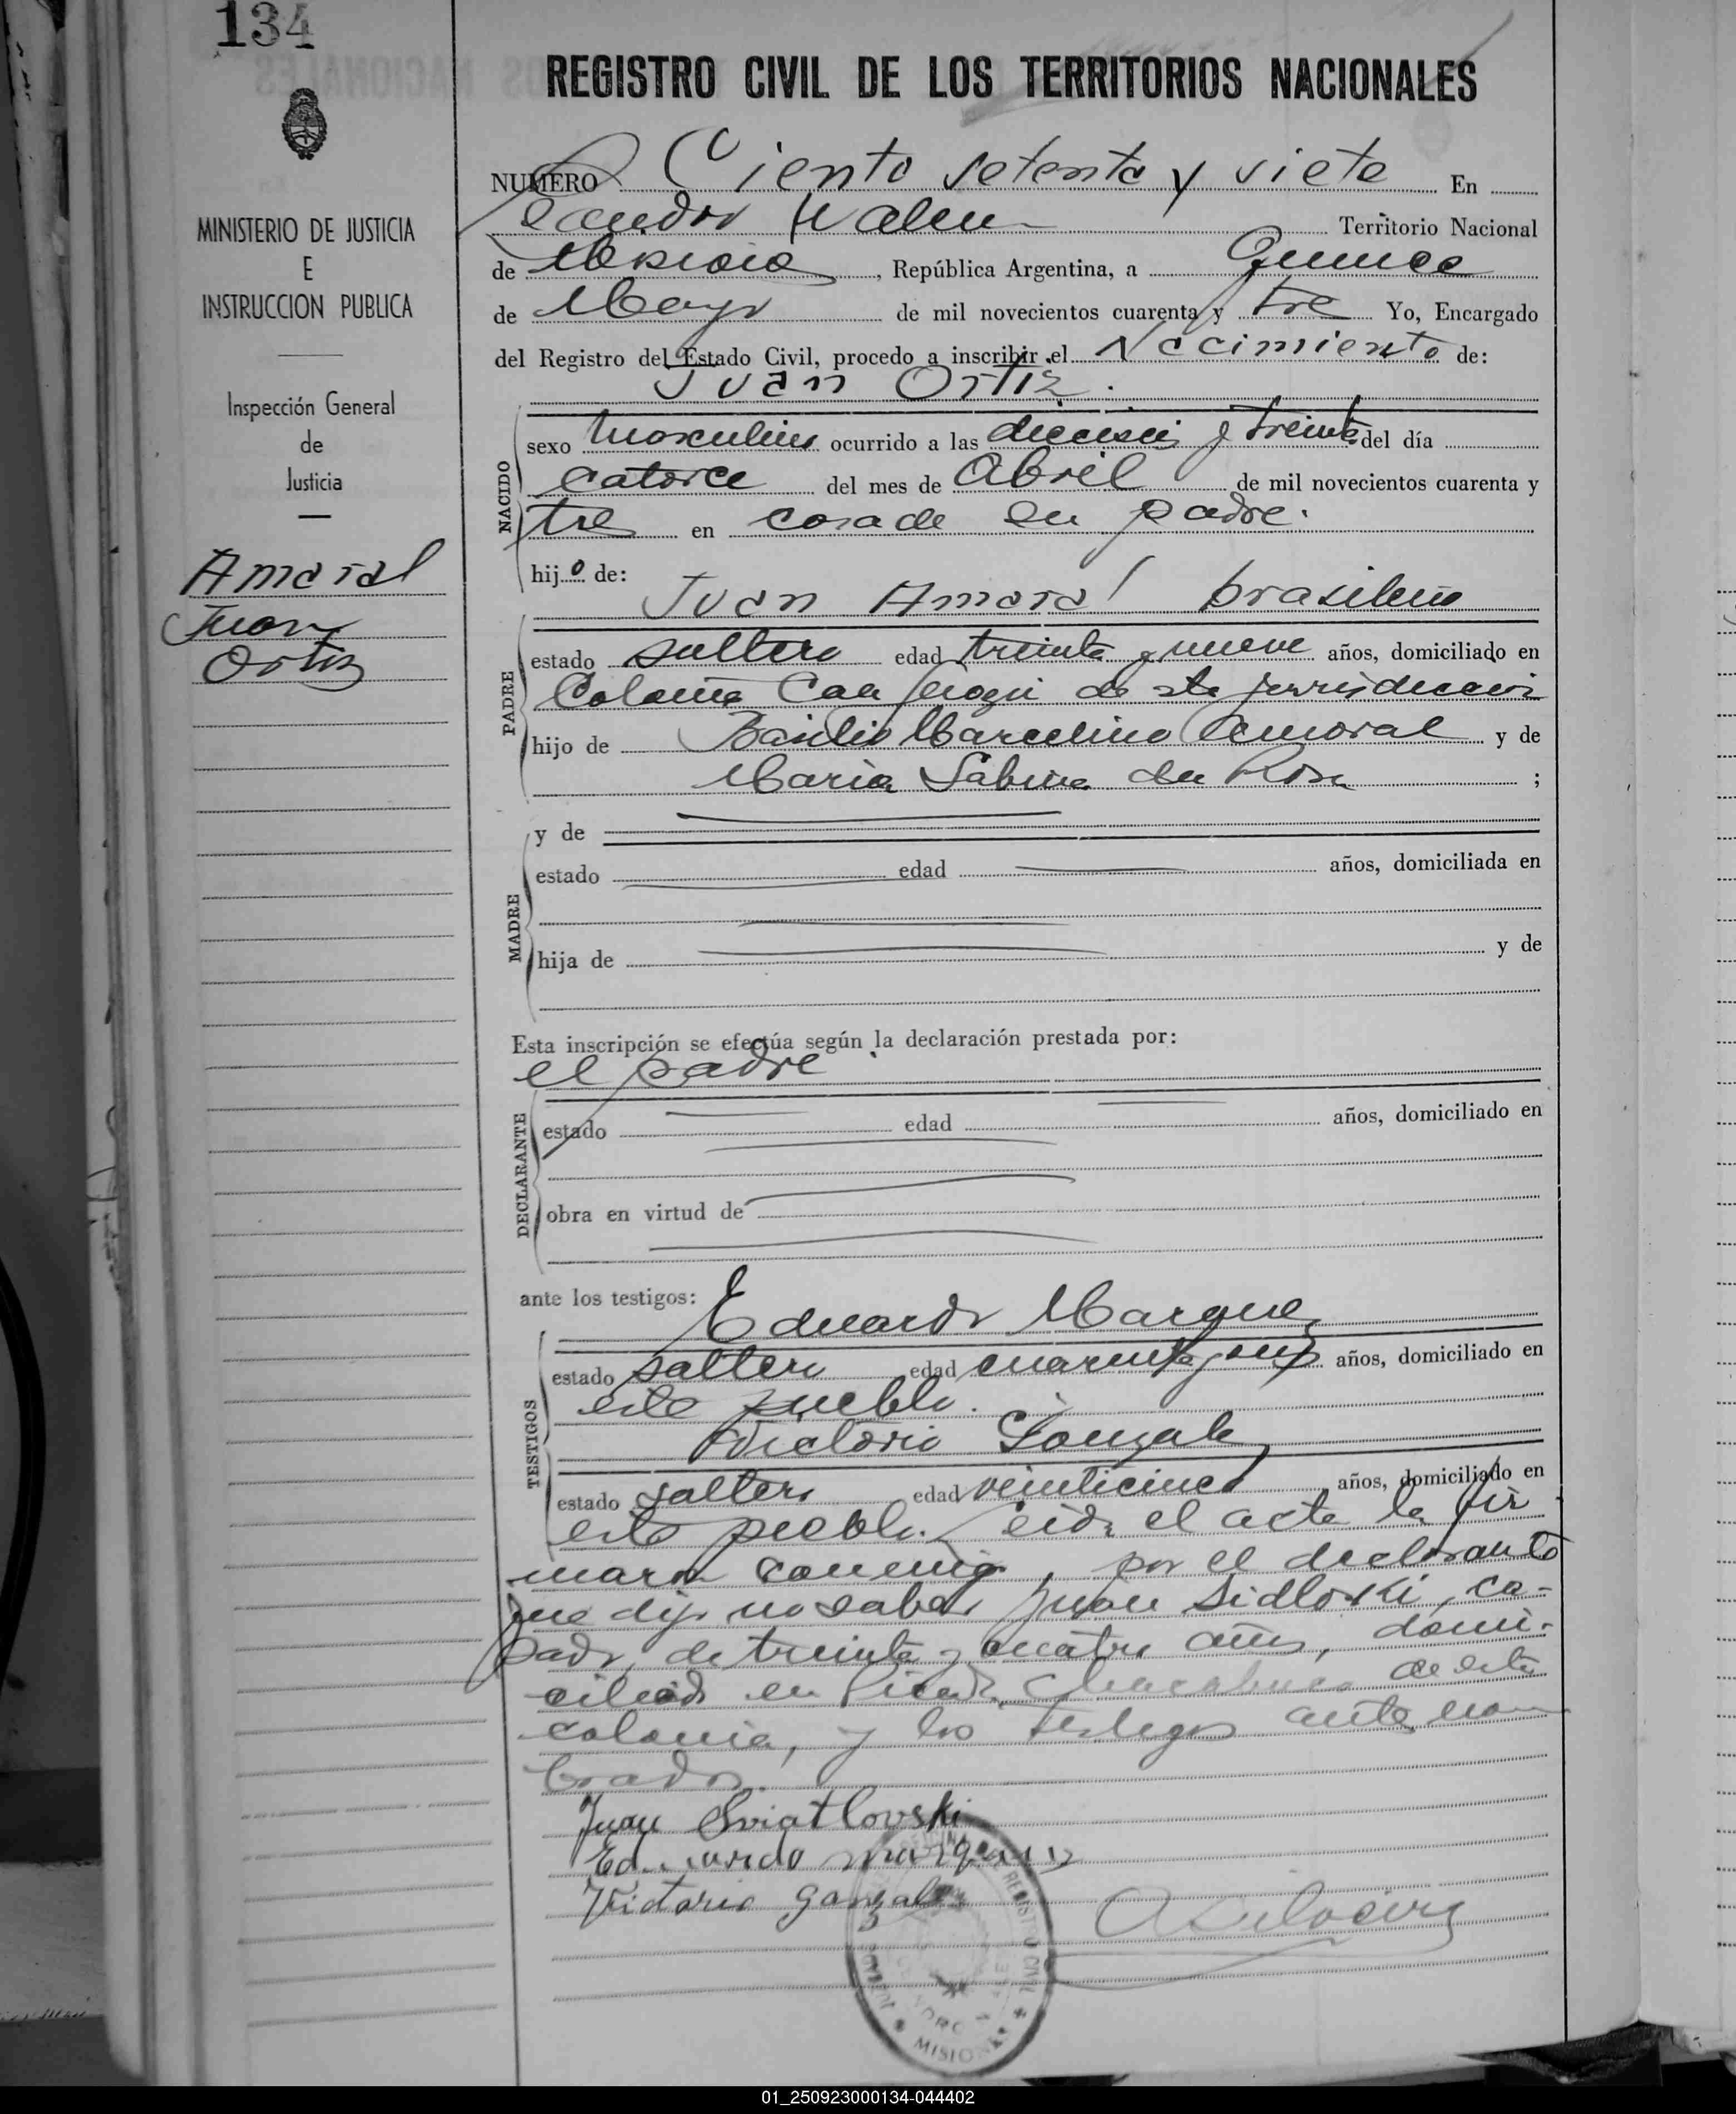 134
REGISTRO CIVIL DE LOS TERRITORIOS NACIONALES
MINISTERIO DE JUSTICIA
E
INSTRUCCION PUBLICA
Inspección General
de
Justicia
Amaral
Juan
Ortiz
NUMERO Ciento setenta y siete En
Territorio Nacional
de Misiones, República Argentina, a Quince
de Mayo de mil novecientos cuarenta y tre Yo, Encargado
del Registro del Estado Civil, procedo a inscribir el Nacimiento de:
Juan Ortiz.
NACIDO
sexo masculino ocurrido a las dieciseis y treinta del día
catorce del mes de Abril de mil novecientos cuarenta y
tres en casa de su padre.
hijo de:
Juan Amaral brasileño
PADRE
estado soltero edad treinta y nueve años, domiciliado en
Colonia Caa de esta jurisdiccion
hijo de Basilio Marcelino Amaral y de
Maria Sabina da Rosa ;
MADRE
y de
estado edad años, domiciliada en
hija de y de
Esta inscripción se efectúa según la declaración prestada por:
el padre
DECLARANTE
estado edad años, domiciliado en
obra en virtud de
ante los testigos:
Eduardo Marquez
TESTIGOS
estado soltero edad cuarenta y años, domiciliado en
este pueblo.
Victorio Gonzalez
estado soltero edad veinticinco años, domiciliado en
este pueblo. Leida el acta la fir
maron conmigo, por el declarante
que dijo no saber Juan Sidloski, ca-
sado, de treinta y cuatro años, domi-
ciliado en Picada Chacabuco de esta
colonia, y los testigos antenom
brados.
Juan Sviatlovski
Eduardo marquez
Victorio Gonzalez
REGISTRO CIVIL
MISIONES
01_250923000134-044402